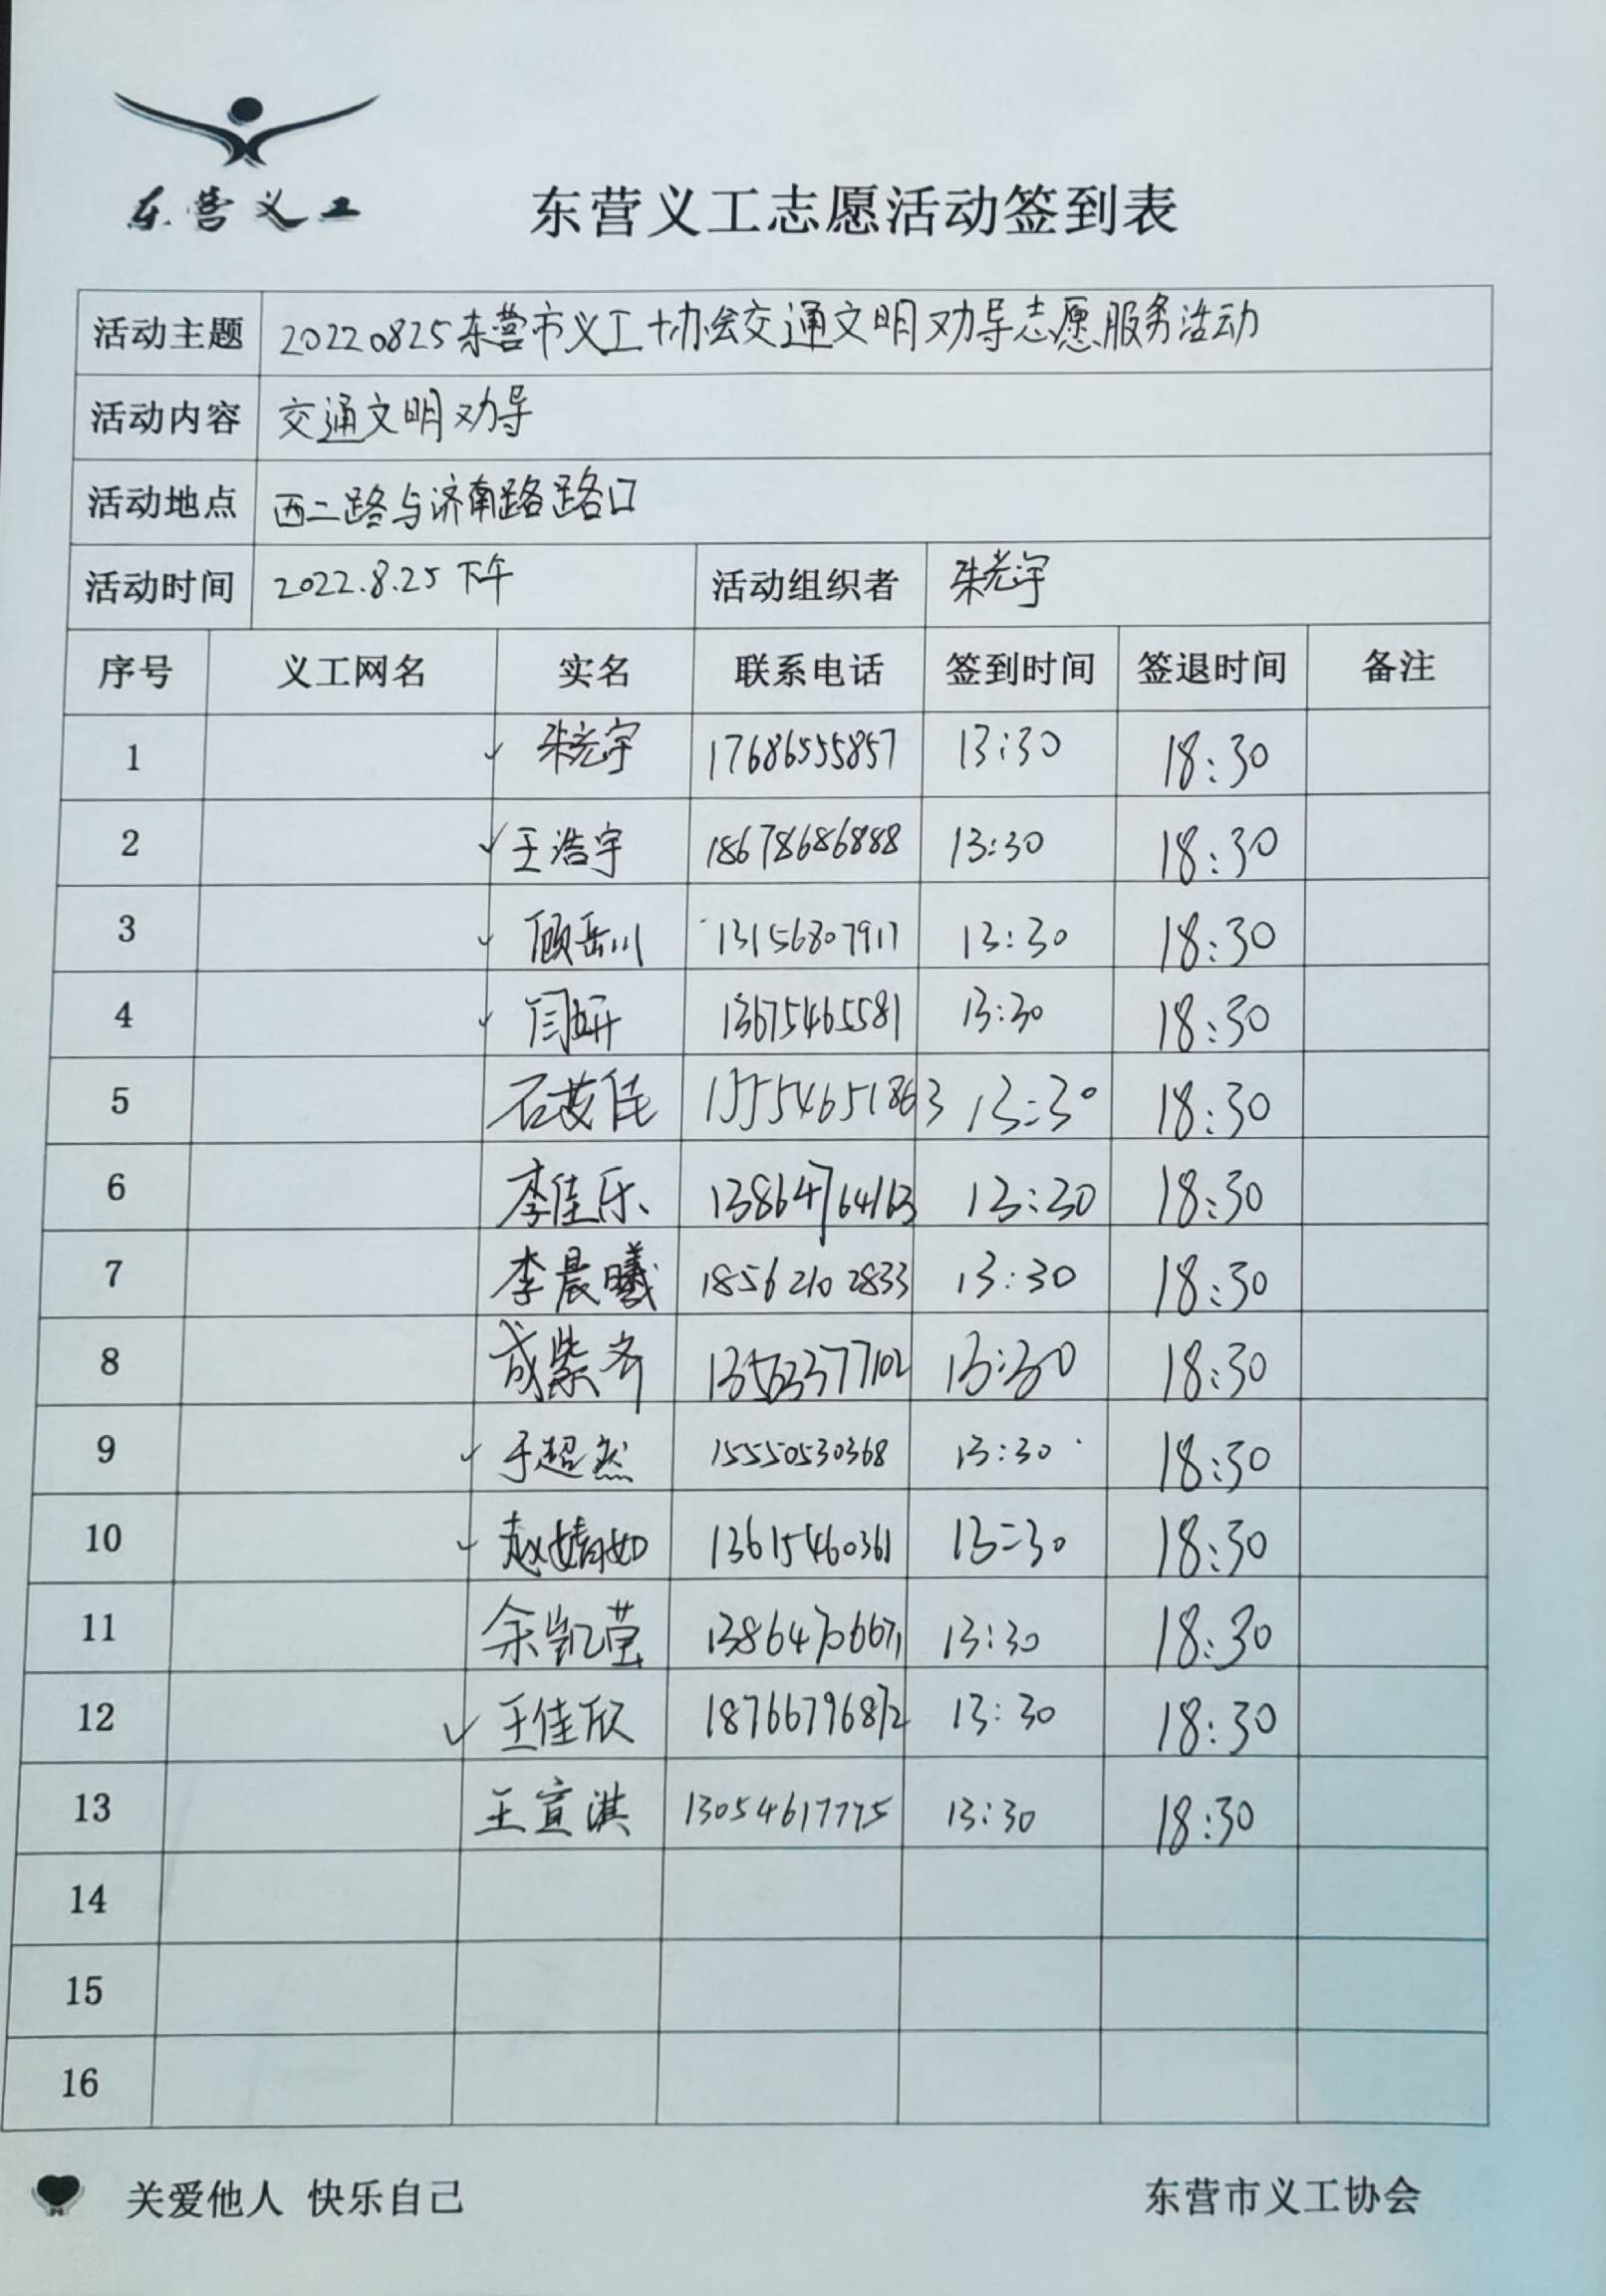 东营义工
东营义工志愿活动签到表
活动主题 20220825东营市义工协会交通文明劝导志愿服务活动
活动内容 交通文明劝导
活动地点 西二路与济南路路口
活动时间 2022.8.25下午 活动组织者 朱光宇
序号 义工网名 实名 联系电话 签到时间 签退时间 备注
1 ✓ 朱光宇 17686555857 13:30 18:30
2 ✓ 王浩宇 18678686888 13:30 18:30
3 ✓ 顾岳川 13156807917 13:30 18:30
4 ✓ 闫妍 13675465581 13:30 18:30
5 石茂佳 15554651863 13:30 18:30
6 李佳乐 13864764163 13:30 18:30
7 李晨曦 18562102833 13:30 18:30
8 成紫齐 13563377102 13:30 18:30
9 ✓ 于超然 15550530368 13:30 18:30
10 ✓ 赵婧如 13615460361 13:30 18:30
11 余凯莹 13864706671 13:30 18:30
12 ✓ 王佳欣 18766796872 13:30 18:30
13 王宣淇 13054617775 13:30 18:30
14
15
16
关爱他人 快乐自己 东营市义工协会